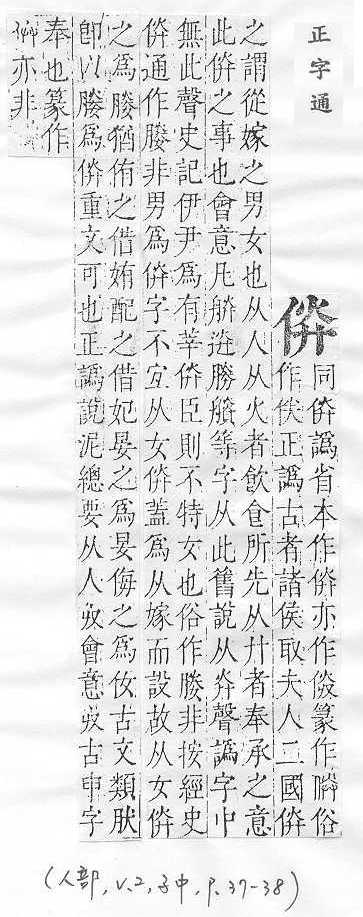 正字通
同㑞譌省本作㑞亦作篆作俗
作佚正譌古者諸侯取夫人二國㑞
之謂從嫁之男女也从人从火者飲食所先从廾者奉承之意
此㑞之事也會意凡等字从此舊說从灷聲譌字中
無此聲史記伊尹爲有莘㑞臣則不特女也俗作媵非按經史
㑞通作媵非男爲㑞字不宜从女㑞蓋爲从嫁而設故从女㑞
之爲媵猶侑之借姷配之借妃晏之爲侮之爲古文類肰
卽以媵爲㑞重文可也正譌說泥總要从人會意古申字
奉也篆作
亦非
(人部, v.2, 子中, p.37-38)